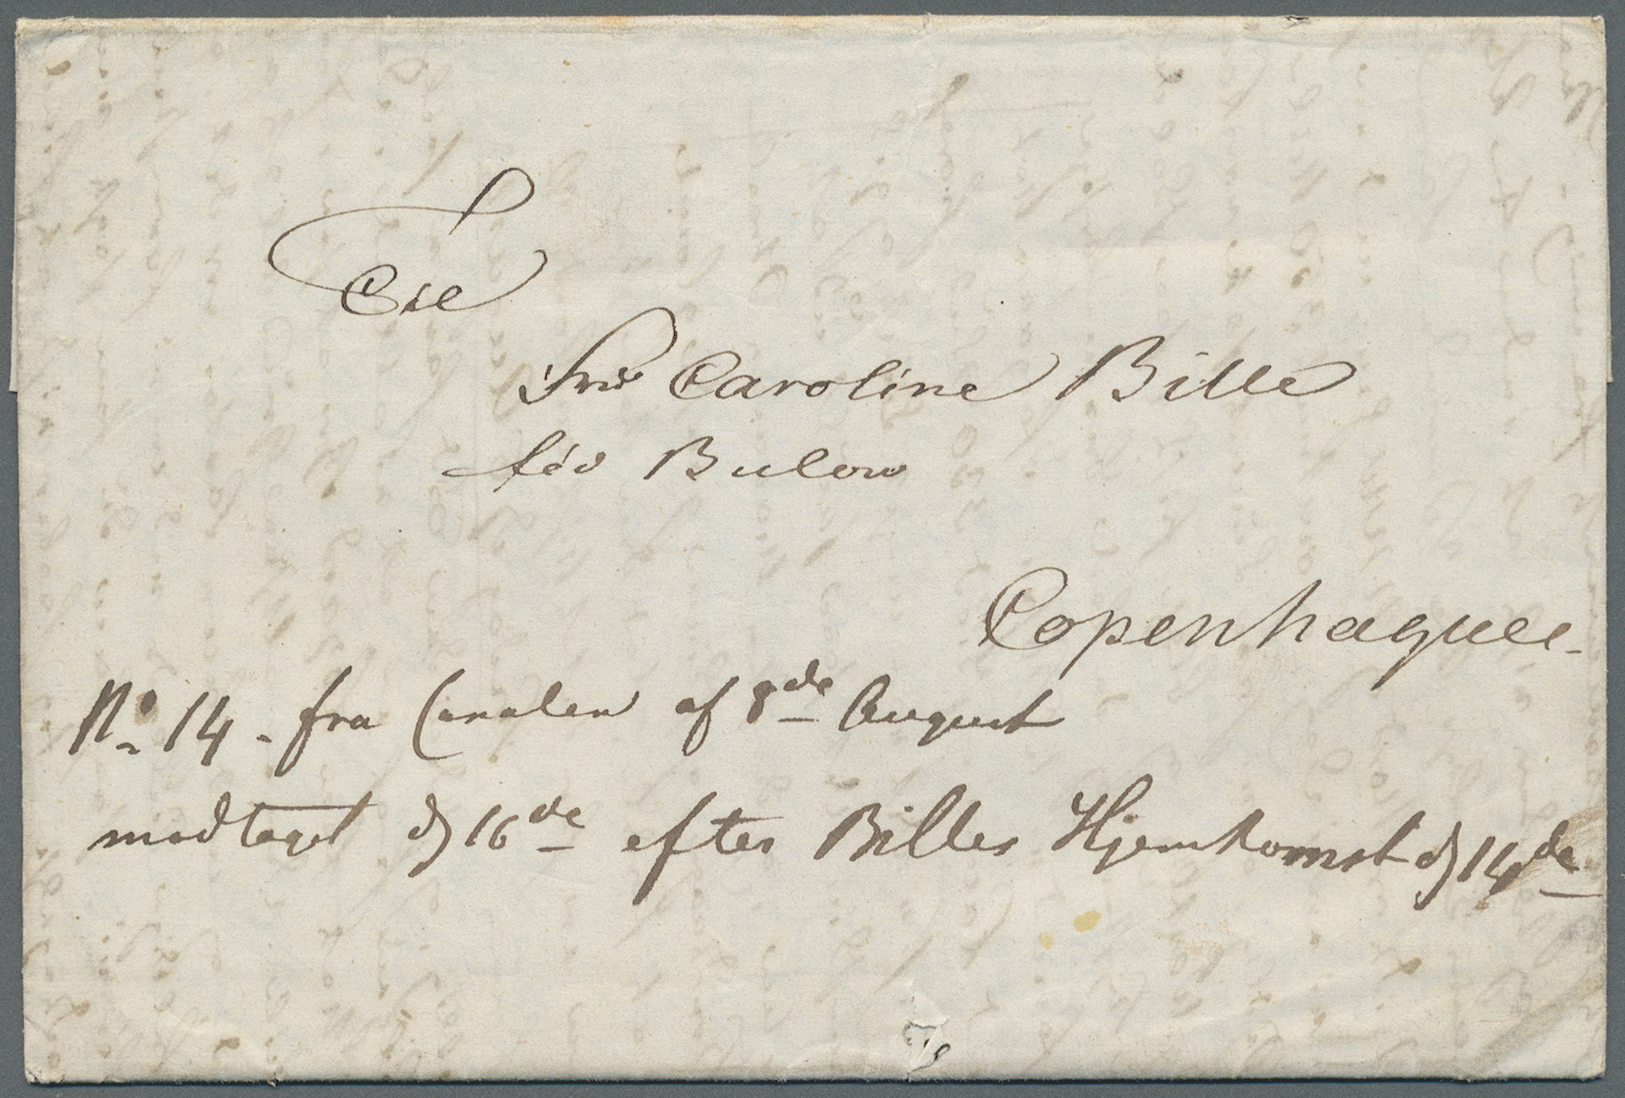 Til
Frue Caroline Bille
fød Bulow
Copenhague.
No. 14. fra Canalen af 8de August
modtaget d 16de efter Billes Hjemkomst d 14de